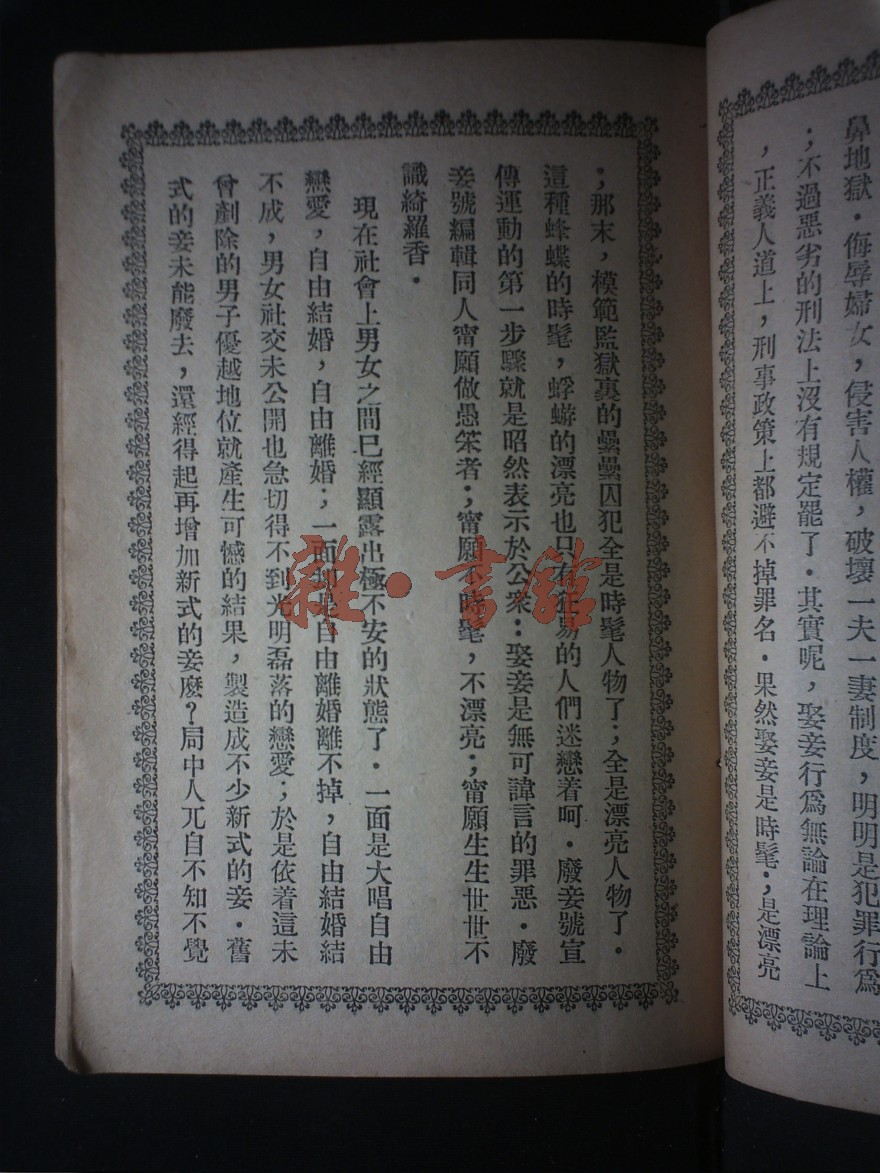 鼻地獄．侮辱婦女，侵害人權，破壞一夫一妻制度，明明是犯罪行爲
；不過惡劣的刑法上沒有規定罷了．其實呢，娶妾行爲無論在理論上
，正義人道上，刑事政策上都避不掉罪名．果然娶妾是時髦；是漂亮
；那末，模範監獄裏的纍纍囚犯全是時髦人物了；全是漂亮人物了．
這種蜂蝶的時髦，蜉蝣的漂亮也只有的人們迷戀着呵．廢妾號宣
傳運動的第一步驟就是昭然表示於公衆：娶妾是無可諱言的罪惡．廢
妾號編輯同人甯願做愚笨者；甯願不時髦，不漂亮；甯願生生世世不
識綺羅香．
現在社會上男女之間已經顯露出極不安的狀態了．一面是大唱自由
戀愛，自由結婚，自由離婚；一面却是自由離婚離不掉，自由結婚結
不成，男女社交未公開也急切得不到光明磊落的戀愛；於是依着這未
曾剷除的男子優越地位就產生可憾的結果，製造成不少新式的妾．舊
式的妾未能廢去，還經得起再增加新式的妾麽？局中人兀自不知不覺
雜·書館